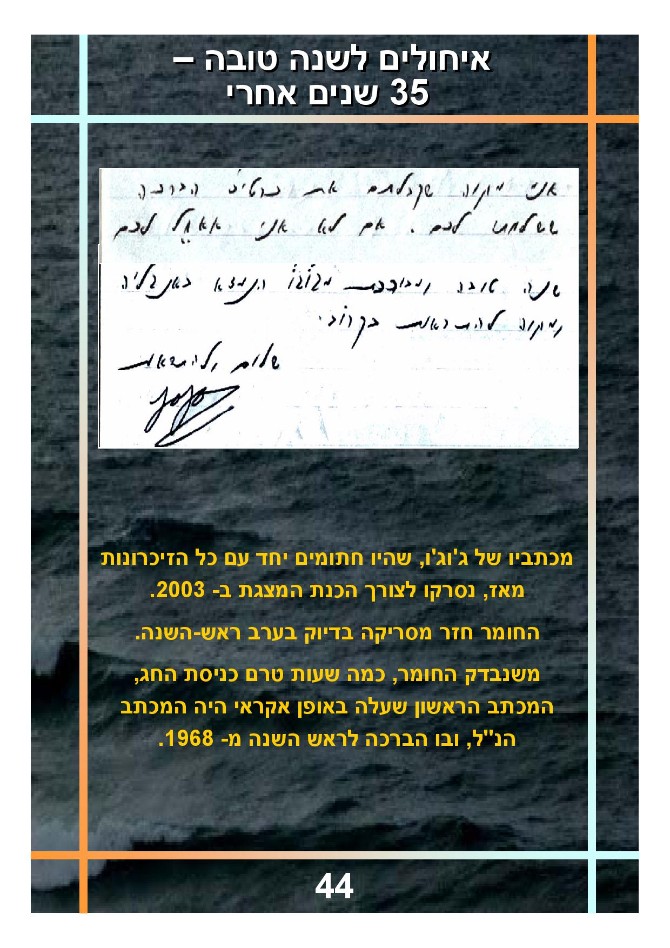 איחולים לשנה טובה –
35 שנים אחרי
אני מקוה שקבלתם את כרטיס הברכה
ששלחתי לכם. אם לא אני אאחל לכם
שנה טובה ומבורכת מג'וג'ו הנמצא באנגליה
ומקוה להתראות בקרוב.
שלום ולהתראות
JoJo
מכתביו של ג'וג'ו, שהיו חתומים יחד עם כל הזיכרונות
מאז, נסרקו לצורך הכנת המצגת ב- 2003.
החומר חזר מסריקה בדיוק בערב ראש-השנה.
משנבדק החומר, כמה שעות טרם כניסת החג,
המכתב הראשון שעלה באופן אקראי היה המכתב
הנ"ל, ובו הברכה לראש השנה מ- 1968.
44